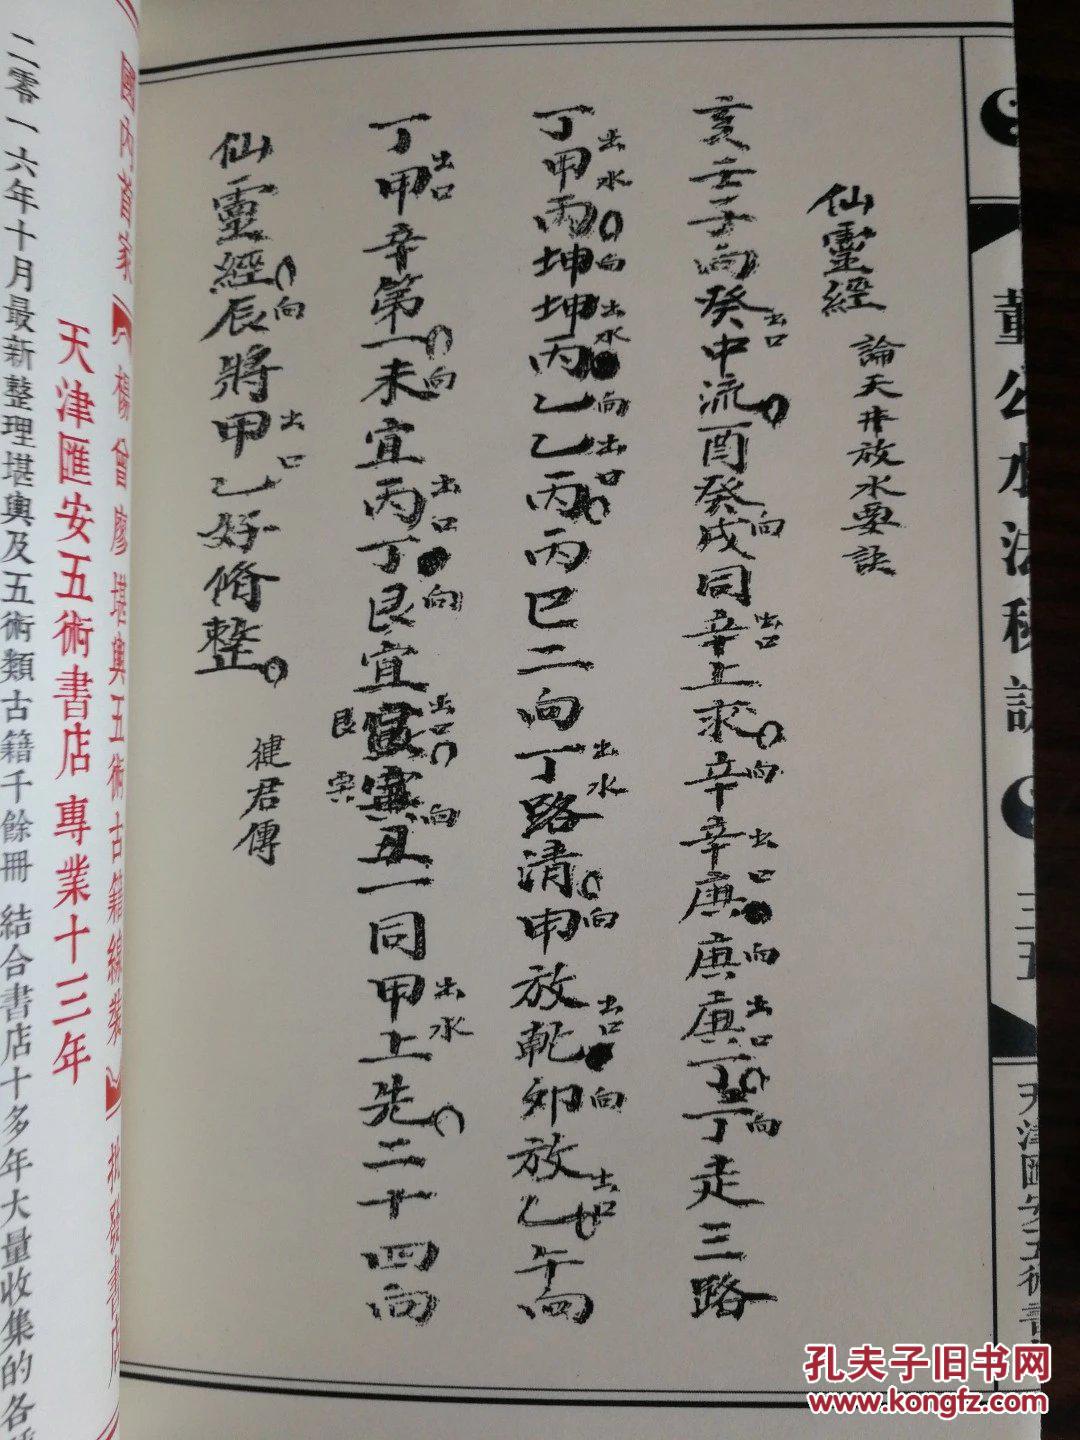 董公水法秘訣
三五
天津匯安五術書
仙靈經 論天井放水要訣
亥壬子向癸中流酉癸戌同辛上求辛辛庚庚庚丁丁走三路
出口 向 出口 向 出口 向 出口 向
丁甲丙坤坤丙乙乙丙丙巳二向丁路清申放乾卯放乙午向
出水 向 出水 向 出口 出水 向 出口 向 出口
丁甲辛第一未宜丙丁艮宜寅寅丑一同甲上先二十四向
出口 向 出口 向 出口 向 出水
艮
仙靈經辰將甲乙好脩整
向 出口
健君傳
國內首家【楊曾廖堪輿五術古籍線裝】批發書店
天津匯安五術書店 專業十三年
二零一六年十月最新整理堪輿及五術類古籍千餘冊 結合書店十多年大量收集的各種
孔夫子旧书网
www.kongfz.com